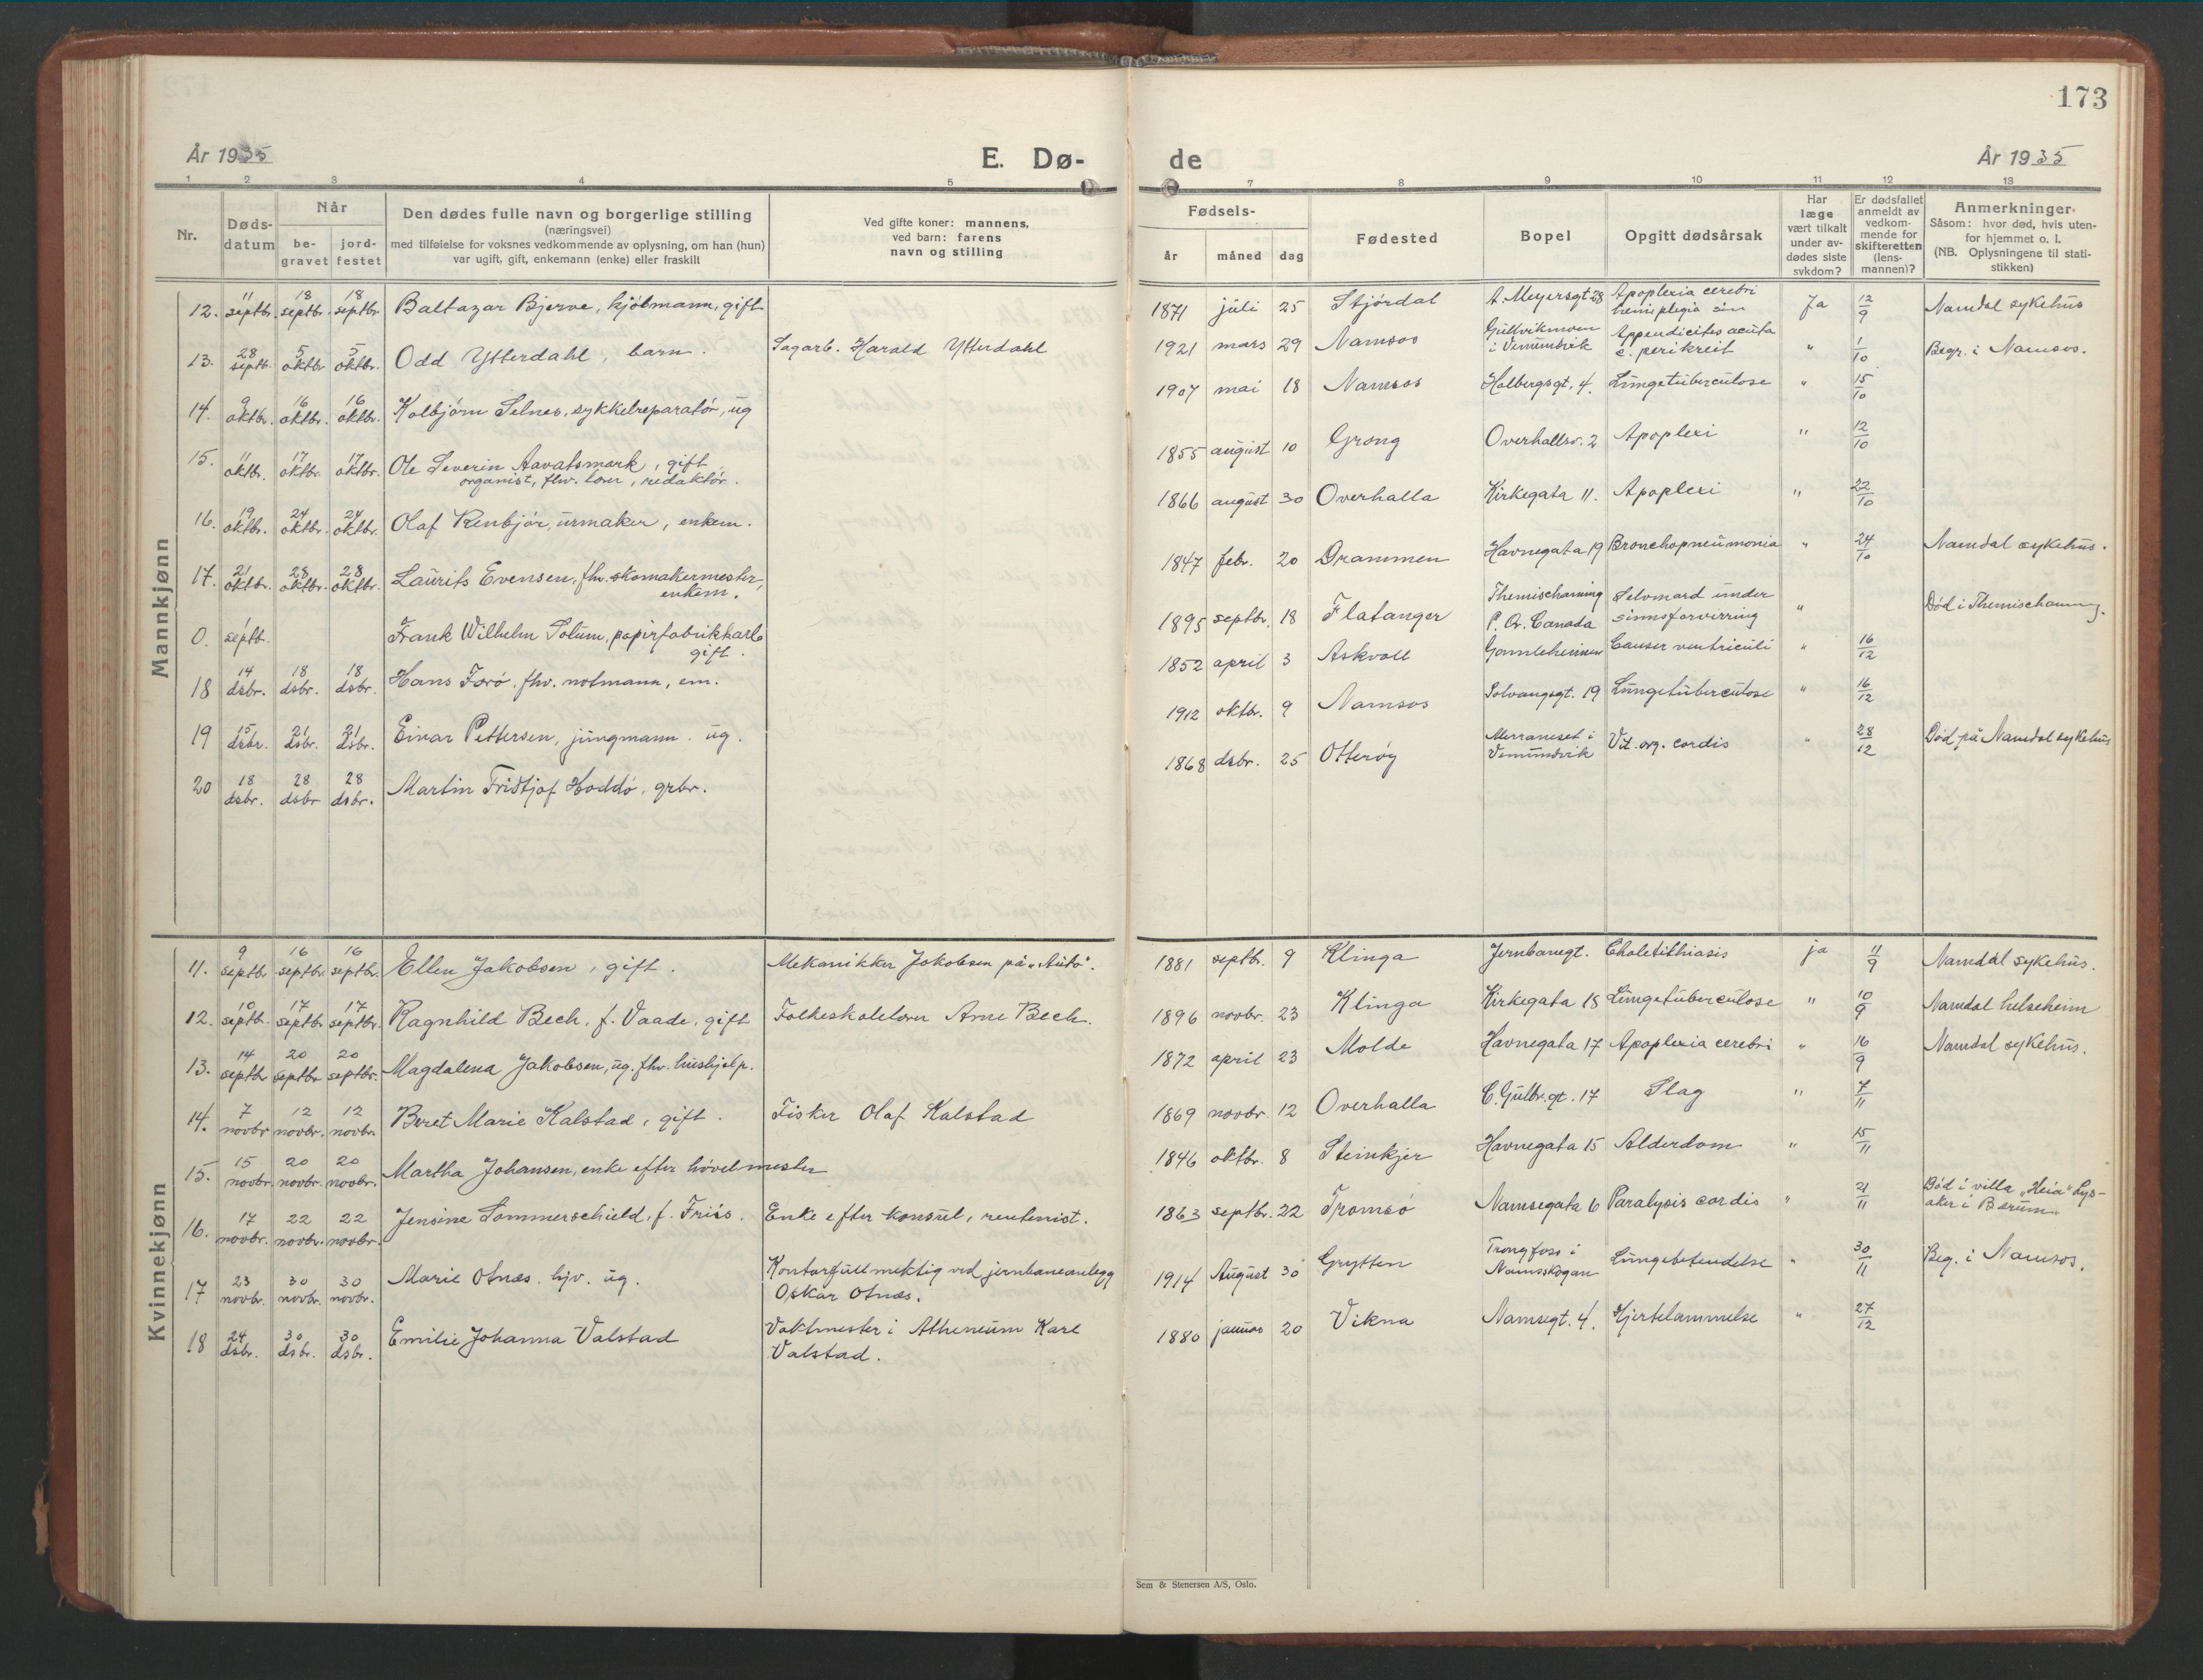 173
År 1935
E. Dø-
de
År 1935
1 2 3 4 5 7 8 9 10 11 12 13
Nr.
Døds-
datum
Når
be-
gravet
jord-
festet
Den dødes fulle navn og borgerlige stilling
(næringsvei)
med tilføielse for voksnes vedkommende av oplysning, om han (hun)
var ugift, gift, enkemann (enke) eller fraskilt
Ved gifte koner: mannens,
ved barn: farens
navn og stilling
Fødsels-
år måned dag
Fødested
Bopel
Opgitt dødsårsak
Har
læge
vært tilkalt
under av-
dødes siste
sykdom?
Er dødsfallet
anmeldt av
vedkom-
mende for
skifteretten
(lens-
mannen)?
Anmerkninger.
Såsom: hvor død, hvis uten-
for hjemmet o. l.
(NB. Oplysningene til stati-
stikken)
Mannkjønn
12. 11 septbr. 18 septbr. 18 septbr. Baltazar Bjerve, kjøbmann, gift 1871 juli 25 Stjørdal A. Meyersgt 28 Apoplexia cerebri hemiplegia sin Ja 12/9 Namdal sykehus
13. 28 septb. 5 oktbr. 5 oktbr. Odd Ytterdahl, barn. Sagarb. Harald Ytterdahl 1921 mars 29 Namsos Gullvikmoen i Vemundvik Appendicites acuta c. " 1/10 Begr. i Namsos.
14. 9 oktbr. 16 oktbr. 16 oktbr. Kolbjørn Selnes, sykkelreparatør, ug 1907 mai 18 Namsos Holbergsgt, 4. Lungetuberculose " 15/10
15. 11 oktbr. 17 oktbr. 17 oktbr. Ole Severin Aavatsmark, gift
organist, fhv. lærer, redaktør. 1855 august 10 Grong Overhallsv. 2 Apoplexi " 12/10
16. 19 oktbr. 24 oktbr. 24 oktbr. Olaf Renbjør, urmaker, enkem. 1866 august 30 Overhalla Kirkegata 11. Apoplexi " 22/10
17. 21 oktbr. 28 oktbr. 28 oktbr. Laurits Evensen, fhv. skomakermester,
enkem. 1847 febr. 20 Drammen Havnegata 19 Bronchopneumonia " 24/10 Namdal sykehus.
0. 1 septb. Frank Wilhelm Solum, papirfabrikkarb
gift. 1895 septbr. 18 Flatanger Themischaming P. Qv. Canada Selvmord under sinnsforvirring " Død i Themischaming.
18 14 dsbr. 18 dsbr. 18 dsbr. Hans Forø, fhv. notmann, em. 1852 april 3 Askvoll Gamleheimen Cancer ventriculi " 16/12
19 15 dsbr. 21 dsbr. 21 dsbr. Einar Pettersen, jungmann. ug. 1912 oktbr. 9 Namsos Solvangsgt. 19 Lungetuberculose " 16/12
20 18 dsbr. 28 dsbr 28 dsbr. Martin Fridtjof Hoddø, grbr. 1868 dsbr. 25 Otterøy Merraneset i Vemundvik Vit. org. cordis " 28/12 Død på Namdal sykehus
Kvinnekjønn
11. 9 septbr 16 septbr. 16 septbr. Ellen Jakobsen, gift. Mekanikker Jakobsen på „Auto". 1881 septbr. 9 Klinga Jernbanegt. Choletithiasis ja 11/9 Namdal sykehus.
12. 10 septb. 17 septbr 17 septbr. Ragnhild Bech, f. Vaade, gift Folkeskolelærer Arne Bech. 1896 novbr. 23 Klinga Kirkegata 18 Lungetuberculose " 10/9 Namdal helseheim
13. 14 septbr 20 septbr 20 septbr. Magdalena Jakobsen, ug. fhv. hushjelp. 1872 april 23 Molde Havnegata 17 Apoplexia cerebri " 16/9 Namdal sykehus.
14. 7 novbr 12 novbr. 12 novbr. Beret Marie Kalstad, gift. Fisker Olaf Kalstad 1869 novbr 12 Overhalla C. Gulbr. gt. 17 Slag " 7/11
15. 15 novbr. 20 novbr. 20 novbr. Martha Johansen, enke efter høvelmester 1846 oktbr. 8 Steinkjer Havnegata 15 Alderdom " 15/11
16. 17 novbr. 22 novbr. 22 novbr. Jensine Sommerschield, f. Friis. Enke efter konsul, rentenist. 1863 septbr. 22 Tromsø Namsegata 6 Paralysis cordis " 21/11 Død i villa „Heia" Lys-
aker i Bærum
17 23 novbr. 30 novbr. 30 novbr. Marie Otnæs. hjv. ug. Kontorfullmektig ved jernbaneanlegg
Oskar Otnæs. 1914 August 30 Grytten Trongfoss i Namsskogan Lungebetendelse " 30/11 Beg. i Namsos.
18 24 dsbr. 30 dsbr. 30 dsbr. Emilie Johanna Valstad Vaktmester i Atheneum Karl
Valstad. 1880 januar 20 Vikna Namsegt. 4. Hjertelammelse " 27/12
Sem & Stenersen A/S, Oslo.